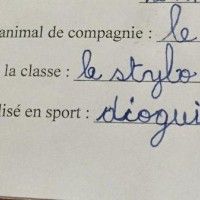 animal de compagnie : le
la classe : le stylo
isé en sport : dioqui